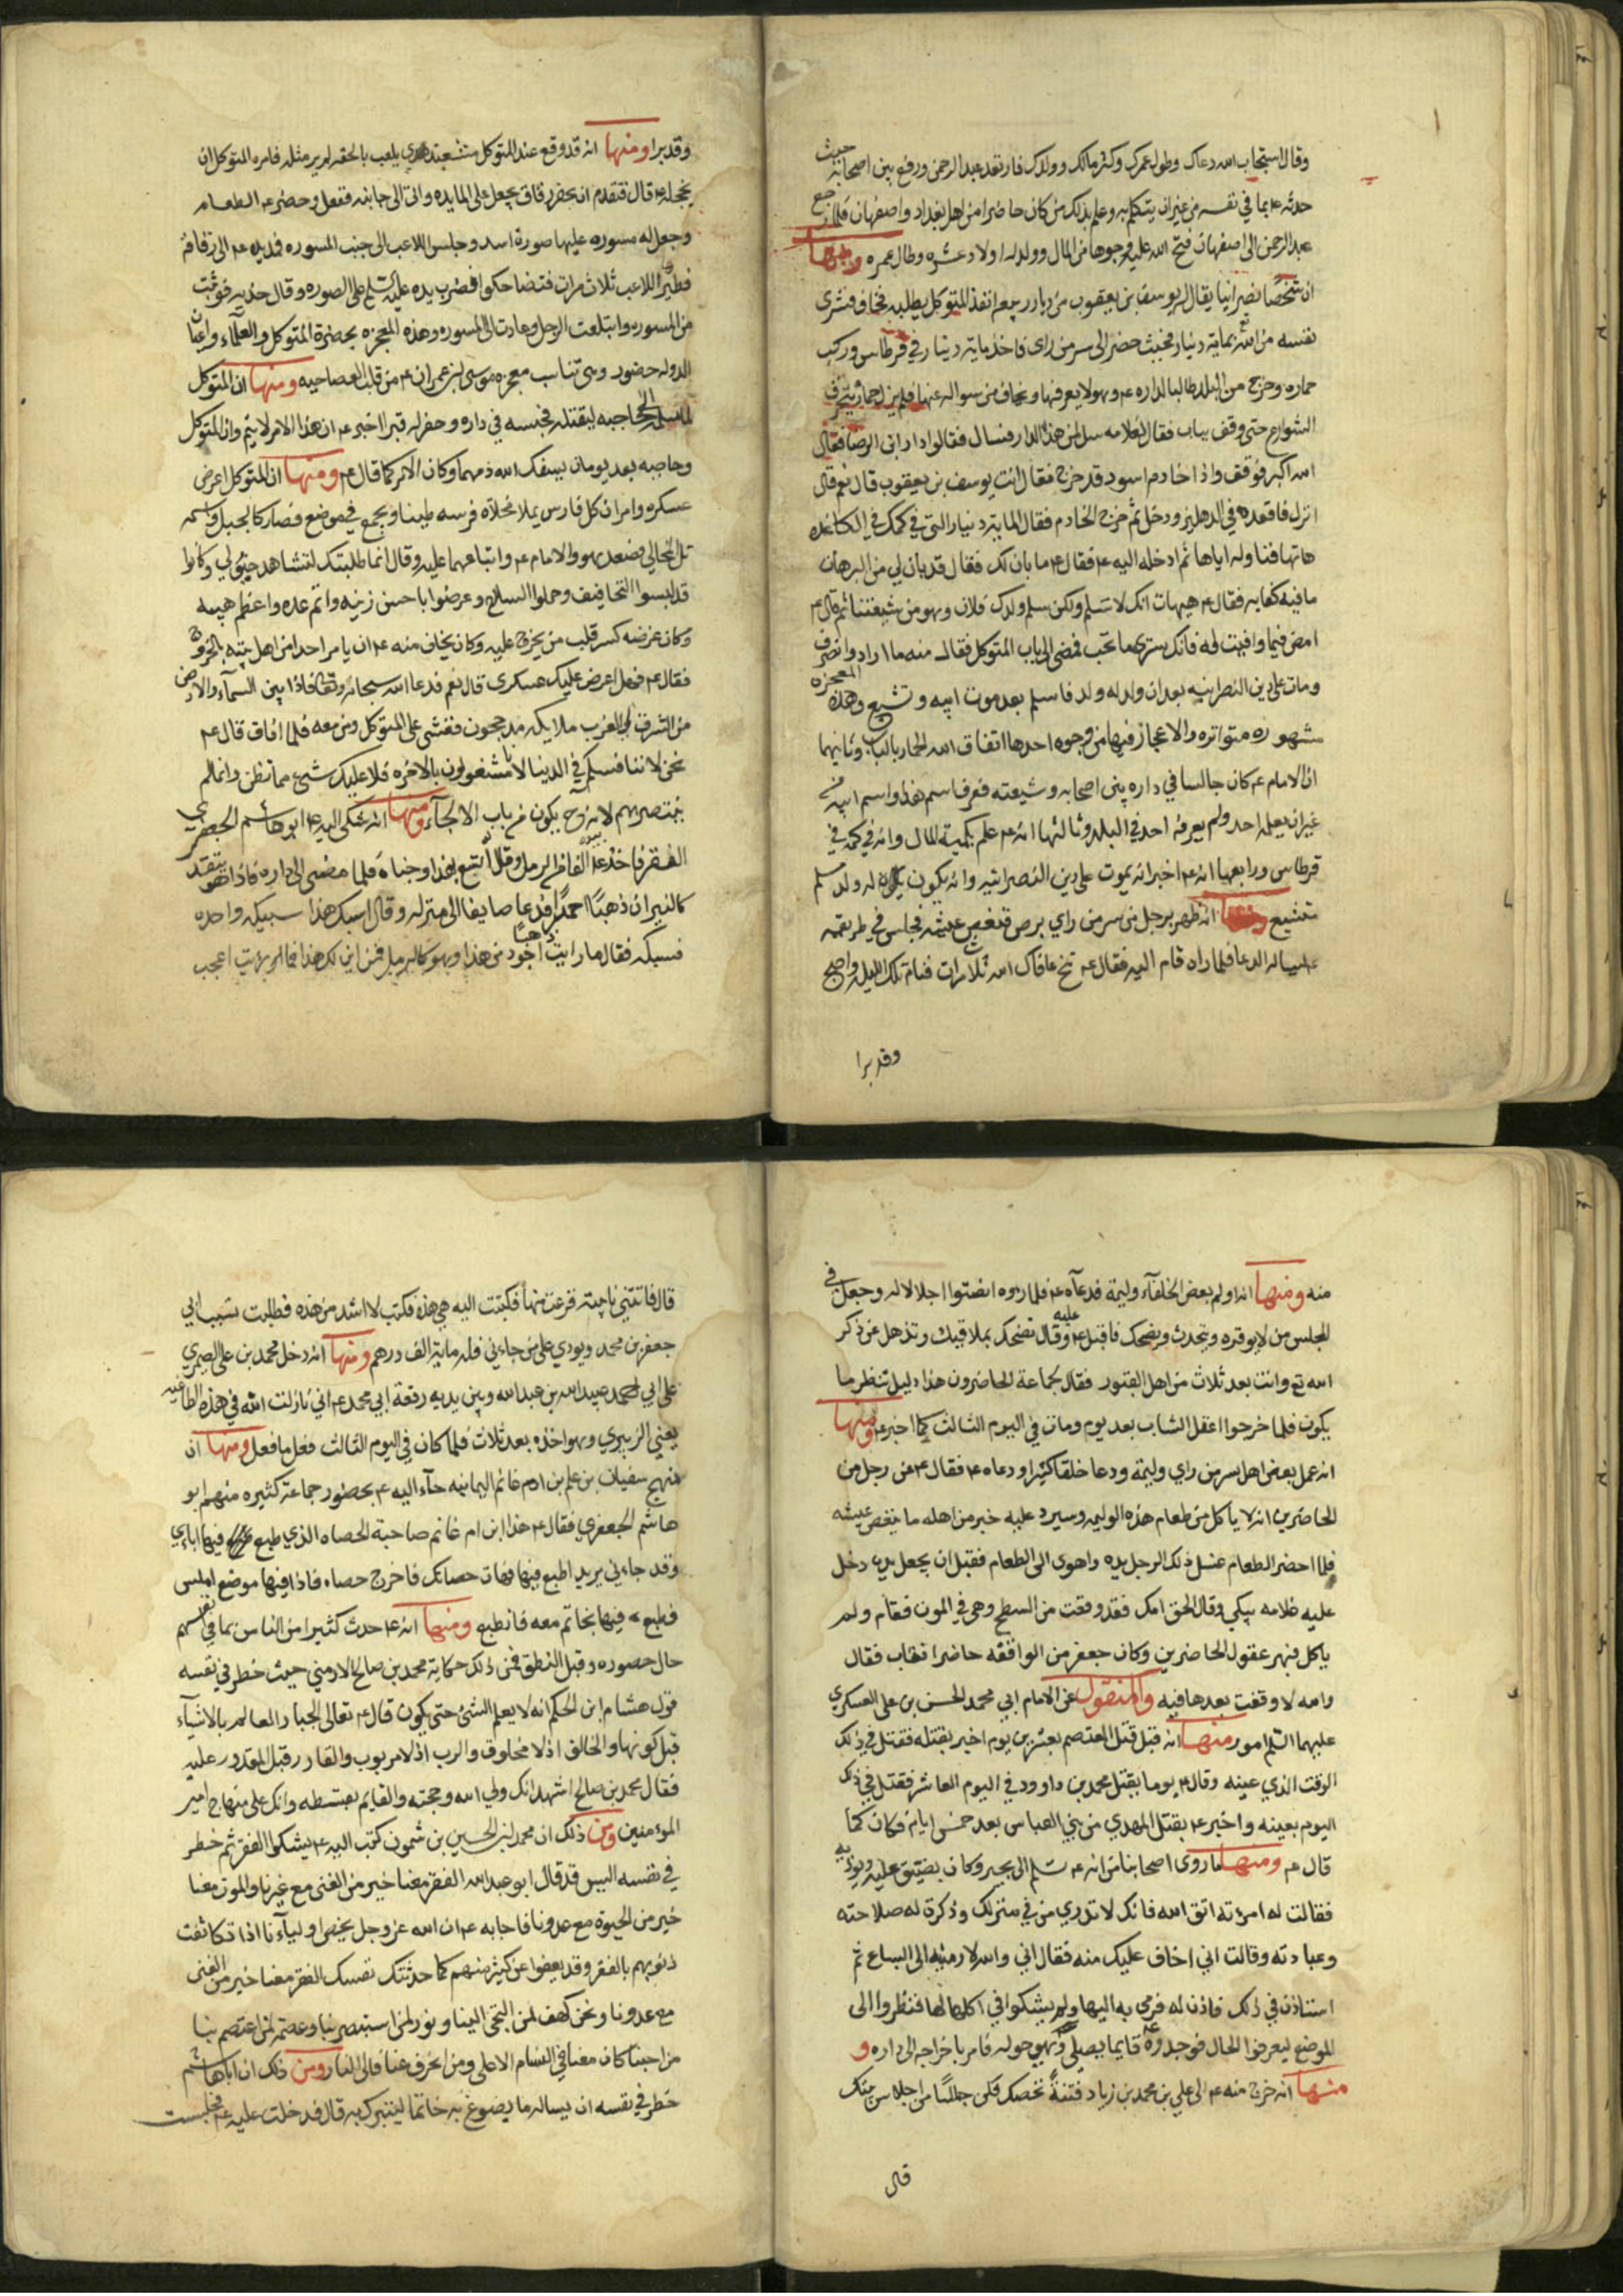 وقال استجاب الله دعاك وطول عمرك وكثر مالك وولدك فارتعد عبد الرحمن ورفع بين اصحابه حيث
حدثه ع بما في نفسه من غير ان يتكلم به وعلم بذلك من كان حاضرا من اهل بغداد واصفهان فلما رجع
عبد الرحمن الى اصفهان فتح الله عليه وجوها من المال وولد له اولاد عشره وطال عمره ومنها
ان شخصا نصرانيا يقال له يوسف بن يعقوب من ديار ربيعه انفذ المتوكل يطلبه فخاف فشرى
نفسه من الله تع بماية دينار فحيث حضر الى سر من راى فاخذ ماية دينار في قرطاس وركب
حماره وخرج من البلد طالبا لداره ع وهو لا يعرفها ويخاف من سواله عنها فلم يزل حماره يتخرق
الشوارع حتى وقف بباب فقال لغلامه سل لمن هذا الدار فسال فقالوا دار ابن الرضا فقال
الله اكبر فوقف واذا خادم اسود قد خرج فقال انت يوسف بن يعقوب قال نعم قال
انزل فاقعده في الدهليز ودخل ثم خرج الخادم فقال الماية دينار التي في كمك في الكاغذه
هاتها فناوله اياها ثم ادخله اليه ع فقال ع ما بان لك فقال قد بان لي من البرهان
ما فيه كفايه فقال ع هيهات انك لا تسلم ولكن سلم ولدك فلان وهو من شيعتنا ثم قال ع
امض فيما وافيت له فانك سترى ما تحب فمضى الى باب المتوكل فقال منه ما اراد وانصرف
ومات على دين النصرانيه بعد ان ولد له ولد فاسلم بعد موت ابيه وتشيع وهذه المعجزه
مشهوره متواتره والاعجاز فيها من وجوه احدها اتفاق الحمار بالباب وثانيها
ان الامام ع كان جالسا في داره بين اصحابه وشيعته فعرف اسم هذا واسم ابيه من
غير ان يعلمه احد ولم يعرفه احد في البلد وثالثها انه ع علم بكمية المال وانه في كمه في
قرطاس ورابعها انه ع اخبر انه يموت على دين النصرانيه وانه يكون له ولد مسلم
متشيع ومنها انه ظهر برجل من سر من راي برص فتنغص عيشه فجلس في طريقه
ع ليساله الدعا فلما راه قام اليه فقال ع تنح عافاك الله ثلاث مرات فنام تلك الليله واصبح
وقد برا
وقد برا ومنها انه قد وقع عند المتوكل مشعبد هندي يلعب بالحقه لم ير مثله فامره المتوكل ان
يخجله ع قال فتقدم ان يحضر رقاق يجعل على المايده وانى الى جانبه ففعل وحضر ع الطعام
وجعل له مسوره عليها صورة اسد وجلس اللاعب الى جنب المسوره فمد يده ع الى رقاقه
فطيرها اللاعب ثلاث مرات فتضاحكوا فضرب يده عليه السلم على الصوره وقال خذيه فوثبت
من المسوره وابتلعت الرجل وعادت الى المسوره وهذه المعجزه بحضرة المتوكل والعلماء واعيان
الدوله حضور وهي تناسب معجزه موسى بن عمران ع من قلب العصا حيه ومنها ان المتوكل
لما سلمه الى حاجبه ليقتله فحبسه في داره وحفر له قبرا اخبر ع ان هذا الامر لا يتم وان المتوكل
وحاجبه بعد يومان يسفك الله دمهما وكان الامر كما قال ع ومنها ان المتوكل اعرض
عسكره وامر ان كل فارس يملا مخلاة فرسه طينا ويجمع في موضع فصار كالجبل واسمه
تل المخالي فصعد هو والامام ع واتباعهما عليه وقال انما طلبتك لتشاهد جيوشي وكانوا
قد لبسوا التجافيف وحملوا السلاح وعرضوا باحسن زينه واتم عده واعظم هيبه
وكان غرضه كسر قلب من يخرج عليه وكان يخاف منه ع ان يامر احدا من اهل بيته بالخروج
فقال ع فهل اعرض عليك عسكرى قال نعم فدعا الله سبحانه وتعالى فاذا بين السماء والارض
من الشرق الى الغرب ملايكه مدججون فغشي على المتوكل ومن معه فلما افاق قال ع
نحن لا ننافسكم في الدينا لانا مشتغولون بالاخره فلا عليك شيء مما تظن وانما لم
ينتصر بهم لانه ح يكون من باب الالجآء ومنها انه شكى اليه ع ابو هاشم الجعفري
الفقر فاخذ ع الفا من الرمل وقال اتسع بهذا وخباه فلما مضى الى داره فاذا هو يتقد
كالنيران ذهبا احمرا فدعا صايغا الى منزله وقال اسبك هذا سبيكه واحده
فسبكه فقال ما رايت ذهبا اجود من هذا وهو كالرمل فمن اين لك هذا فما رايت اعجب
منه ومنها انه اولم بعض الخلفآء وليمة فدعآه ع فلما راوه انصتوا اجلالا له وجعل في
المجلس من لا يوقره ويتحدث ويضحك فاقبل ع عليه وقال تضحك بملا فيك وتذهل عن ذكر
الله تع وانت بعد ثلاث من اهل القبور فقال جماعة الحاضرون هذا دليل ننظر ما
يكون فلما خرجوا اعتقل الشاب بعد يوم ومات في اليوم الثالث كما اخبر ع ومنها
انه عمل بعض اهل سر من راي وليمة ودعا خلقا كثيرا ودعاه ع فقال ع عن رجل من
الحاضرين انه لا ياكل من طعام هذه الوليمه وسيرد عليه خبر من اهله ما ينغص عيشه
فلما احضر الطعام غسل ذلك الرجل يده واهوى الى الطعام فقبل ان يجعل يده دخل
عليه غلامه يبكي وقال الحق امك فقد وقعت من السطح وهي في الموت فقام ولم
ياكل فبهر عقول الحاضرين وكان جعفر من الواقفه حاضرا فتاب فقال
والله لا وقفت بعدها فيه والمنقول عن الامام ابي محمد الحسن بن علي العسكري
عليهما السلم امور منها انه قبل قتل المعتصم بعشرين يوم اخبر بقتله فقتل في ذلك
الوقت الذي عينه وقال ع يوما بقتل محمد بن داوود في اليوم العاشر فقتل في ذلك
اليوم بعينه واخبر ع بقتل المهدي من بني العباس بعد خمس ايام فكان كما
قال ع ومنها ما روى اصحابنا من انه ع سلم الى بحير وكان يضيق عليه ويوذيه
فقالت له امرءته اتق الله فانك لا تدري من في منزلك وذكرة له صلاحته
وعبادته وقالت اني اخاف عليك منه فقال اني والله لارمينه الى السباع ثم
استاذن في ذلك فاذن له فرمى به اليها ولم يشكوا في اكلها لها فنظروا الى
الموضع ليعرفوا الحال فوجدوه ع قايما يصلي وهي حوله فامر باخراجه الى داره و
منها انه خرج منه ع الى علي بن محمد بن زياد فتنة تخصك فكن جالسا من احلاس بيتك
قال
قال فاتتني نايبة فزعت منها فكتبت اليه هي هذه فكتب لا اشد من هذه فطلبت بسبب ابي
جعفر بن محمد ونودي علي من جاءني فله ماية الف درهم ومنها انه دخل محمد بن علي الصيمري
على ابي احمد عبيد الله بن عبد الله وبين يديه رقعة ابي محمد ع اني نازلت الله في هذه الطاغيه
يعني الزبيري وهو اخذه بعد ثلاث فلما كان في اليوم الثالث فعل ما فعل ومنها ان
منهج سفيان بن علم بن ام غانم اليمانيه جآء اليه ع بحضور جماعة كثيره منهم ابو
هاشم الجعفري فقال ع هذا ابن ام غانم صاحبة الحصاه الذي طبع فيها اباءي
وقد جاءني يريد اطبع فيها فهات حصاتك فاخرج حصاه فاذا فيها موضع املس
فطبع ع فيها بخاتم معه فانطبع ومنها انه ع حدث كثيرا من الناس بما في نفسهم
حال حضوره وقبل النطق فمن ذلك حكاية محمد بن صالح الارمني حيث خطر في نفسه
قول هشام ابن الحكم انه لا يعلم الشئ حتى يكون قال ع تعالى الجبار العالم بالاشيآء
قبل كونها والخالق اذ لا مخلوق والرب اذ لا مربوب والقادر قبل المقدور عليه
فقال محمد بن صالح اشهد انك ولي الله وحجته والقايم بقسطه وانك على منهاج امير
المومنين ومن ذلك ان محمد بن الحسين بن شمون كتب اليه ع يشكوا الفقر ثم خطر
في نفسه اليس قد قال ابو عبد الله الفقر معنا خير من الغنى مع غيرنا والموت معنا
خير من الحيوة مع عدونا فاجابه ع ان الله عز وجل يخص اوليآءنا اذا تكاثفت
ذنوبهم بالفقر وقد يعفوا عن كثير منهم كما حدثتك نفسك الفقر معنا خير من الغنى
مع عدونا ونحن كهف لمن التجى الينا ونور لمن استبصر بنا وعصمة لمن اعتصم بنا
من احبنا كان معنا في السنام الاعلى ومن انحرف عنا فالى النار ومن ذلك ان ابا هاشم
خطر في نفسه ان يساله ما يصوغ به خاتما ليتبرك به قال فدخلت عليه ع فجلست